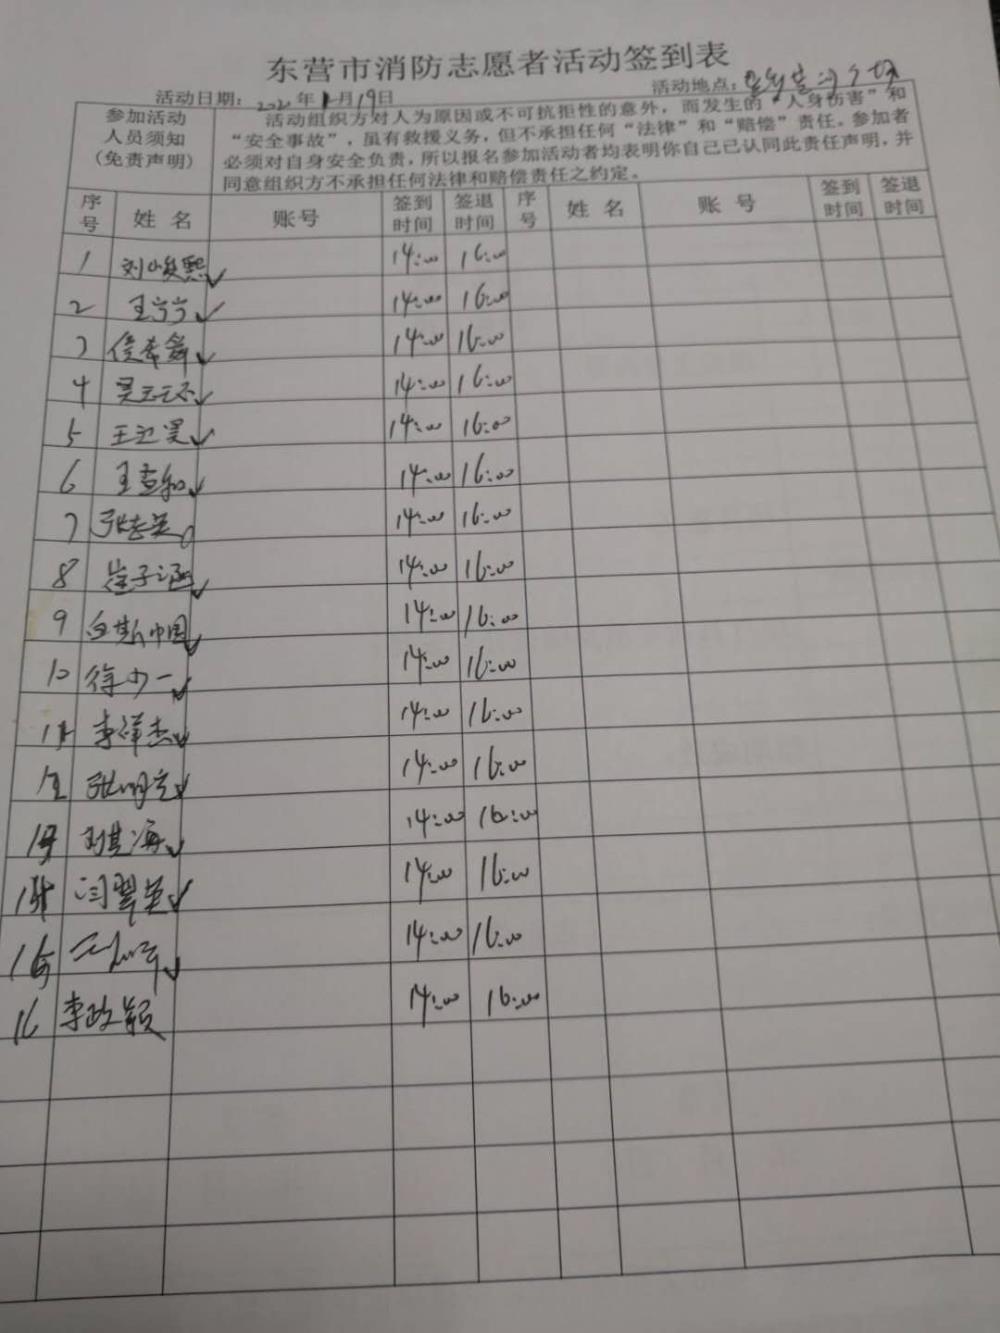 东营市消防志愿者活动签到表
活动日期：2021年 月19日 活动地点：
参加活动
人员须知
（免责声明）
活动组织方对人为原因或不可抗拒性的意外，而发生的“人身伤害”和
“安全事故”，虽有救援义务，但不承担任何“法律”和“赔偿”责任。参加者
必须对自身安全负责，所以报名参加活动者均表明你自己已认同此责任声明，并
同意组织方不承担任何法律和赔偿责任之约定。
序号 姓名 账号 签到时间 签退时间 序号 姓名 账号 签到时间 签退时间
1 刘峻熙 14:00 16:00
2 王宁宁 14:00 16:00
3 侯希舜 14:00 16:00
4 14:00 16:00
5 王 昊 14:00 16:00
6 王 和 14:00 16:00
7 张志英 14:00 16:00
8 崔子涵 14:00 16:00
9 中国 14:00 16:00
10 徐少一 14:00 16:00
11 李祥杰 14:00 16:00
12 张明亮 14:00 16:00
13 刘其海 14:00 16:00
14 闫翠英 14:00 16:00
15 14:00 16:00
16 李政颖 14:00 16:00